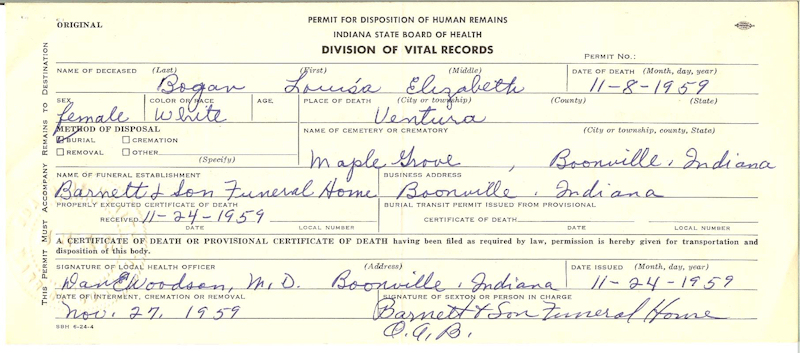 ORIGINAL
PERMIT FOR DISPOSITION OF HUMAN REMAINS
INDIANA STATE BOARD OF HEALTH
DIVISION OF VITAL RECORDS
PERMIT NO.:
THIS PERMIT MUST ACCOMPANY REMAINS TO DESTINATION
NAME OF DECEASED (Last) (First) (Middle) DATE OF DEATH (Month, day, year)
Bogan Louisa Elizabeth 11-8-1959
SEX COLOR OR RACE AGE PLACE OF DEATH (City or township) (County) (State)
female White Ventura
METHOD OF DISPOSAL NAME OF CEMETERY OR CREMATORY (City or township, county, State)
BURIAL CREMATION
REMOVAL OTHER (Specify)
Maple Grove, Boonville, Indiana
NAME OF FUNERAL ESTABLISHMENT BUSINESS ADDRESS
Barnett & Son Funeral Home Boonville, Indiana
PROPERLY EXECUTED CERTIFICATE OF DEATH BURIAL TRANSIT PERMIT ISSUED FROM PROVISIONAL
RECEIVED 11-24-1959 CERTIFICATE OF DEATH
DATE LOCAL NUMBER DATE LOCAL NUMBER
A CERTIFICATE OF DEATH OR PROVISIONAL CERTIFICATE OF DEATH having been filed as required by law, permission is hereby given for transportation and
disposition of this body.
SIGNATURE OF LOCAL HEALTH OFFICER (Address) DATE ISSUED (Month, day, year)
Dan E Woodson, M.D. Boonville, Indiana 11-24-1959
DATE OF INTERMENT, CREMATION OR REMOVAL SIGNATURE OF SEXTON OR PERSON IN CHARGE
Nov. 27, 1959 Barnett & Son Funeral Home
O.A.B.
SBH 6-24-4